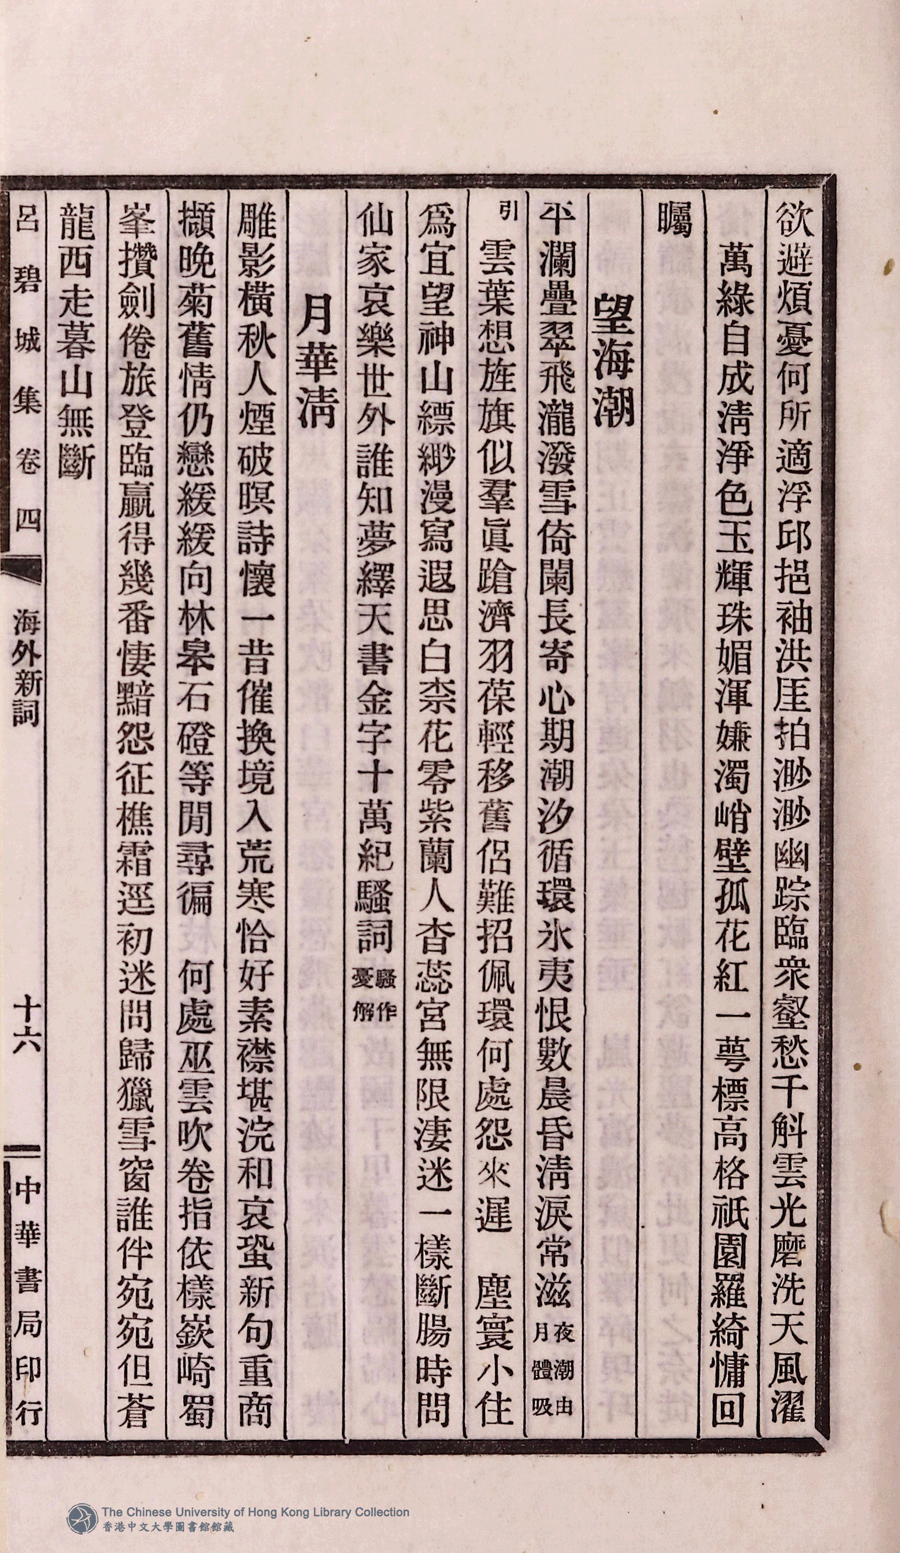 欲避煩憂何所適浮邱挹袖洪厓拍渺渺幽踪臨衆壑愁千斛雲光磨洗天風濯
萬綠自成淸淨色玉輝珠媚渾嫌濁峭壁孤花紅一萼標高格祇園羅綺慵回
矚
望海潮
平瀾疊翠飛瀧潑雪倚闌長寄心期潮汐循環氷夷恨數晨昏淸淚常滋夜潮由月體吸
引 雲葉想旌旗似羣眞蹌濟羽葆輕移舊侶難招佩環何處怨來遲 塵寰小住
爲宜望神山縹緲漫寫遐思白柰花零紫蘭人杳蕊宮無限淒迷一樣斷腸時問
仙家哀樂世外誰知夢繹天書金字十萬紀騷詞騷作憂解
月華淸
雕影橫秋人煙破暝詩懷一昔催換境入荒寒恰好素襟堪浣和哀蛩新句重商
擷晚菊舊情仍戀緩緩向林皋石磴等閒尋徧 何處巫雲吹卷指依樣嶔崎蜀
峯攢劍倦旅登臨贏得幾番悽黯怨征樵霜逕初迷問歸獵雪窗誰伴宛宛但蒼
龍西走暮山無斷
呂碧城集 卷四
海外新詞
十六
中華書局印行
The Chinese University of Hong Kong Library Collection
香港中文大學圖書館館藏